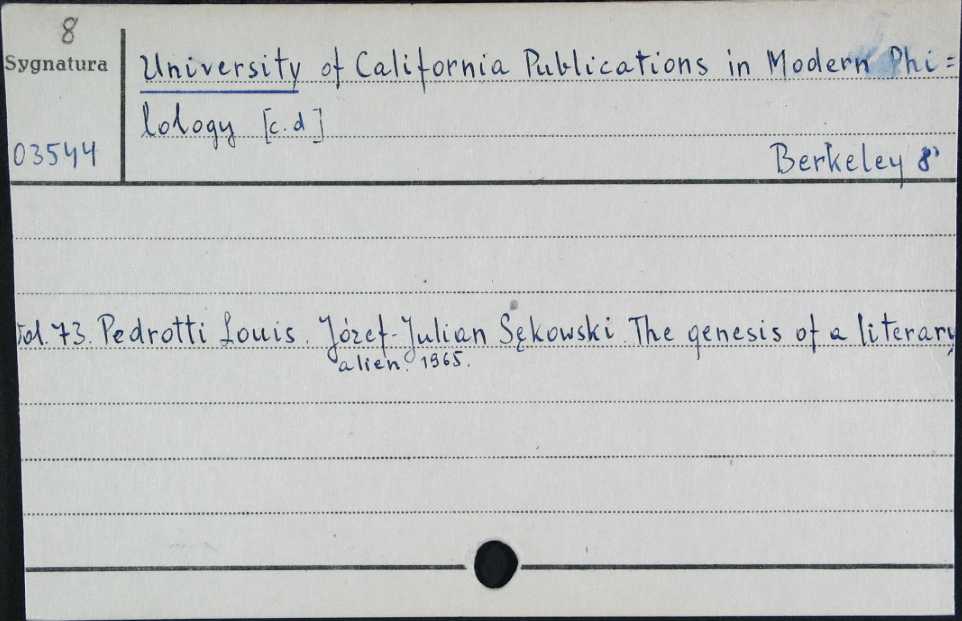 8
Sygnatura
University of California Publications in Modern Phi=
lology [c.d]
03544
Berkeley 8°
Vol. 73. Pedrotti Louis. Józef-Julian Sękowski. The genesis of a literary
alien. 1965.